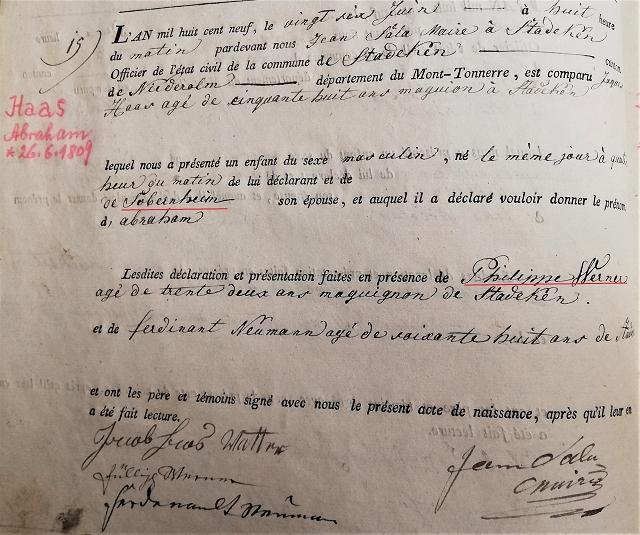 15)
L'AN mil huit cent neuf, le vingt six Juin à huit heure
du matin pardevant nous Jean Sala Maire à Stadeken
Officier de l'état civil de la commune de Stadeken canton
de Niederolm département du Mont-Tonnerre, est comparu
Haas agé de cinquante huit ans à Stadeken
Haas
Abraham
* 26.6.1809
lequel nous a présenté un enfant du sexe masculin, né le même jour à
heur du matin de lui déclarant et de
de Sobernheim, son épouse, et auquel il a déclaré vouloir donner le prénom
d'abraham
Lesdites déclaration et présentation faites en présence de Philippe Werner
agé de trente deux ans maquignon de Stadeken.
et de ferdinant Neumann agé de soixante huit ans de
et ont les père et témoins signé avec nous le présent acte de naissance, après qu'il leur en
a été fait lecture.
Jacob